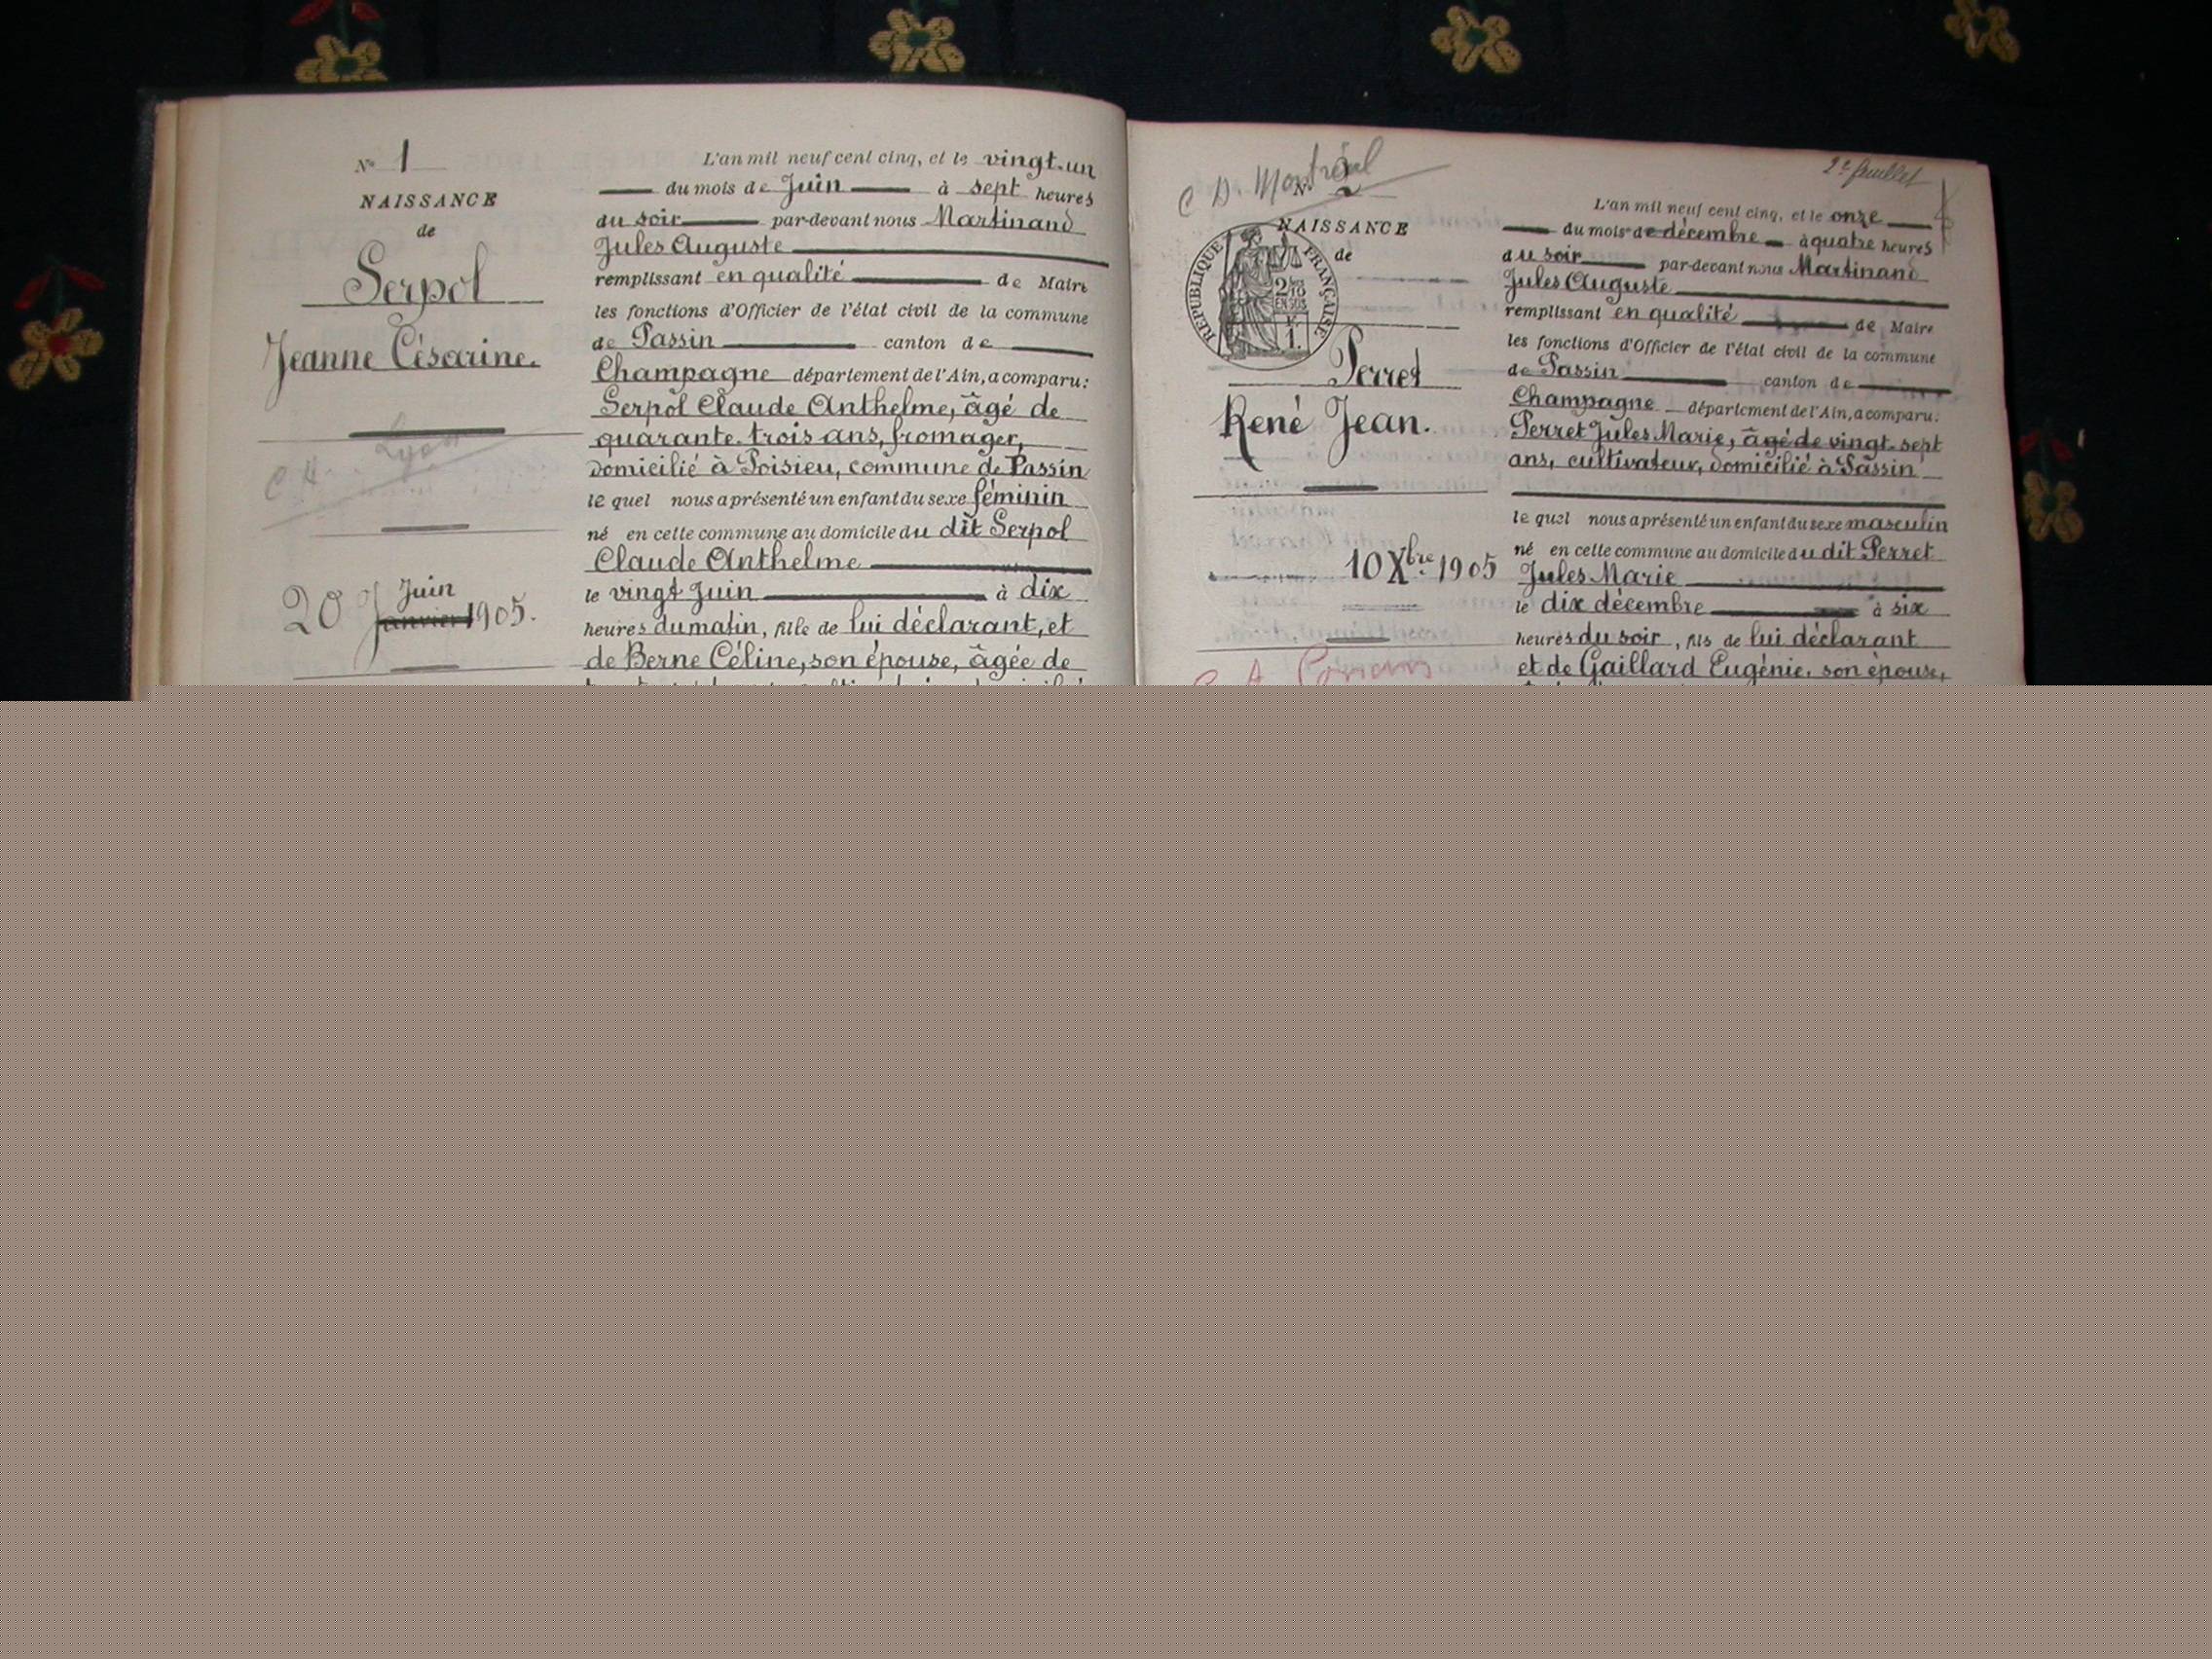 N° 1
NAISSANCE
de
Serpol
Jeanne Césarine.
C A. Lyon
20 Juin
Janvier 1905.
L'an mil neuf cent cinq, et le vingt-un
du mois de Juin à sept heures
du soir par-devant nous Martinand
Jules Auguste
remplissant en qualité de Maire
les fonctions d'Officier de l'état civil de la commune
de Passin canton de
Champagne département de l'Ain, a comparu:
Serpol Claude Anthelme, âgé de
quarante-trois ans, fromager,
domicilié à Poisieu, commune de Passin
lequel nous a présenté un enfant du sexe féminin
né en cette commune au domicile du dit Serpol
Claude Anthelme
le vingt Juin à dix
heures du matin, fille de lui déclarant, et
de Berne Céline, son épouse, âgée de
C D. Montréal
N° 2
NAISSANCE
de
RÉPUBLIQUE FRANÇAISE
EN SUS
Perret
René Jean.
10 Xbre 1905
C A
2e feuillet
L'an mil neuf cent cinq, et le onze
du mois de décembre à quatre heures
du soir par-devant nous Martinand
Jules Auguste
remplissant en qualité de Maire
les fonctions d'Officier de l'état civil de la commune
de Passin canton de
Champagne département de l'Ain, a comparu:
Perret Jules Marie, âgé de vingt-sept
ans, cultivateur, domicilié à Passin
lequel nous a présenté un enfant du sexe masculin
né en cette commune au domicile du dit Perret
Jules Marie
le dix décembre à six
heures du soir, fils de lui déclarant
et de Gaillard Eugénie, son épouse,